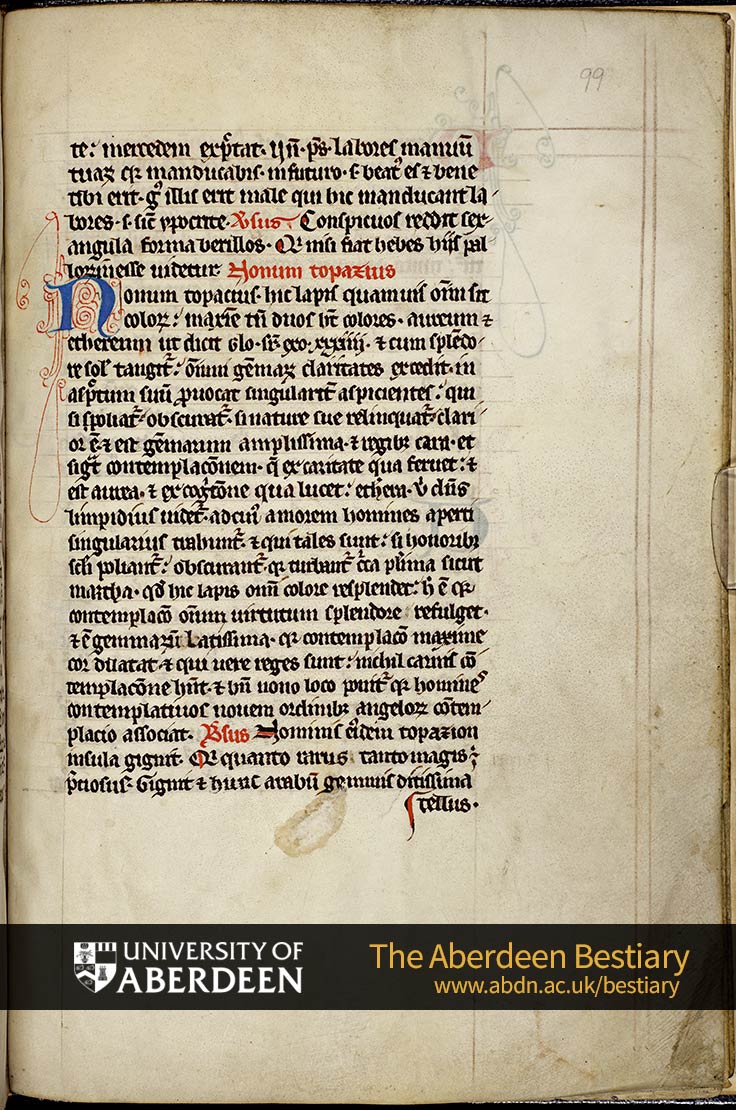 99
te: mercedem exp̄tat. Un̄. ps̄. labores manuū
tuaꝝ qꝛ manducabis. in futuro. s. beat᷒ es ⁊ bene
tibi erit. gͦ illis erit male qui hic manducant la-
bores. s. sic̄ ypocrite. Ꝟsus. Conspicuos reddit sex-
angula forma berillos. Qꝛ nisi fiat hebes hijs pal-
lor inesse uidetur. Nonum topazius
Nonum topacius. hic lapis quamuis om̄i sit
color: maxīe tn̄ duos ht̄ colores. aureum ⁊
ethereum ut dicit glo. sr̄ exo. xxxiiij. ⁊ cum splēdo-
re sol᷒ tangit᷑: om̄iū gēmaꝝ claritates excedit. in
asp̄tum suū ꝓuocat singularit᷑ aspicientes: qui
si spoliat᷑ obscurat᷑. si nature sue relinquat᷑ clari-
or ē. ⁊ est gēmarum amplissima. ⁊ regibꝫ cara. et
sigt̄ contemplacōnem. q̄ ex caritate qua feruet: ⁊
est aurea. ⁊ ex cogͥtōne qua lucet: etherea. v̄ dn̄s
limpidius uidet᷑. ad cui᷒ amorem homines aperti
singularius trahunt᷑. ⁊ qui tales sunt: si honoribꝫ
scl̄i poliant᷑: obscurant᷑. qꝛ turbant᷑ cͥca plͥima sicut
martha. qd̄ hic lapis om̄i colore resplendet: h̄ ē qꝛ
contemplacō om̄ium uirtutum splendore refulget.
⁊ ē gemmaꝝ latissima. qꝛ contemplacō maxime
cor dilatat. ⁊ qui uere reges sunt: nichil carius cō-
templacōne hn̄t. ⁊ bn̄ nono loco ponit᷑ qꝛ homines
contemplatiuos nouem ordinibꝫ angeloꝝ cōtem-
placio associat. Ꝟsus Nominis eiusdem topazion
insula gignit. Qꝛ quanto rarus tanto magis ⁊
p̄ciosus. Gignit ⁊ hunc arabū gemmis ditissima
tellus.
UNIVERSITY OF
ABERDEEN
The Aberdeen Bestiary
www.abdn.ac.uk/bestiary